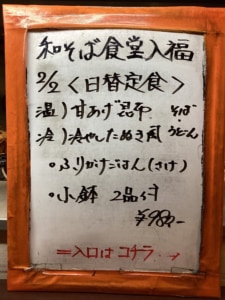 和そば食堂入福
2/2 <日替定食>
温) 甘あげ昆布 そば
冷) 冷やしたぬき風 うどん
・ふりかけごはん(さけ)
・小鉢 2品付
¥980-
⇒入口はコチラ→